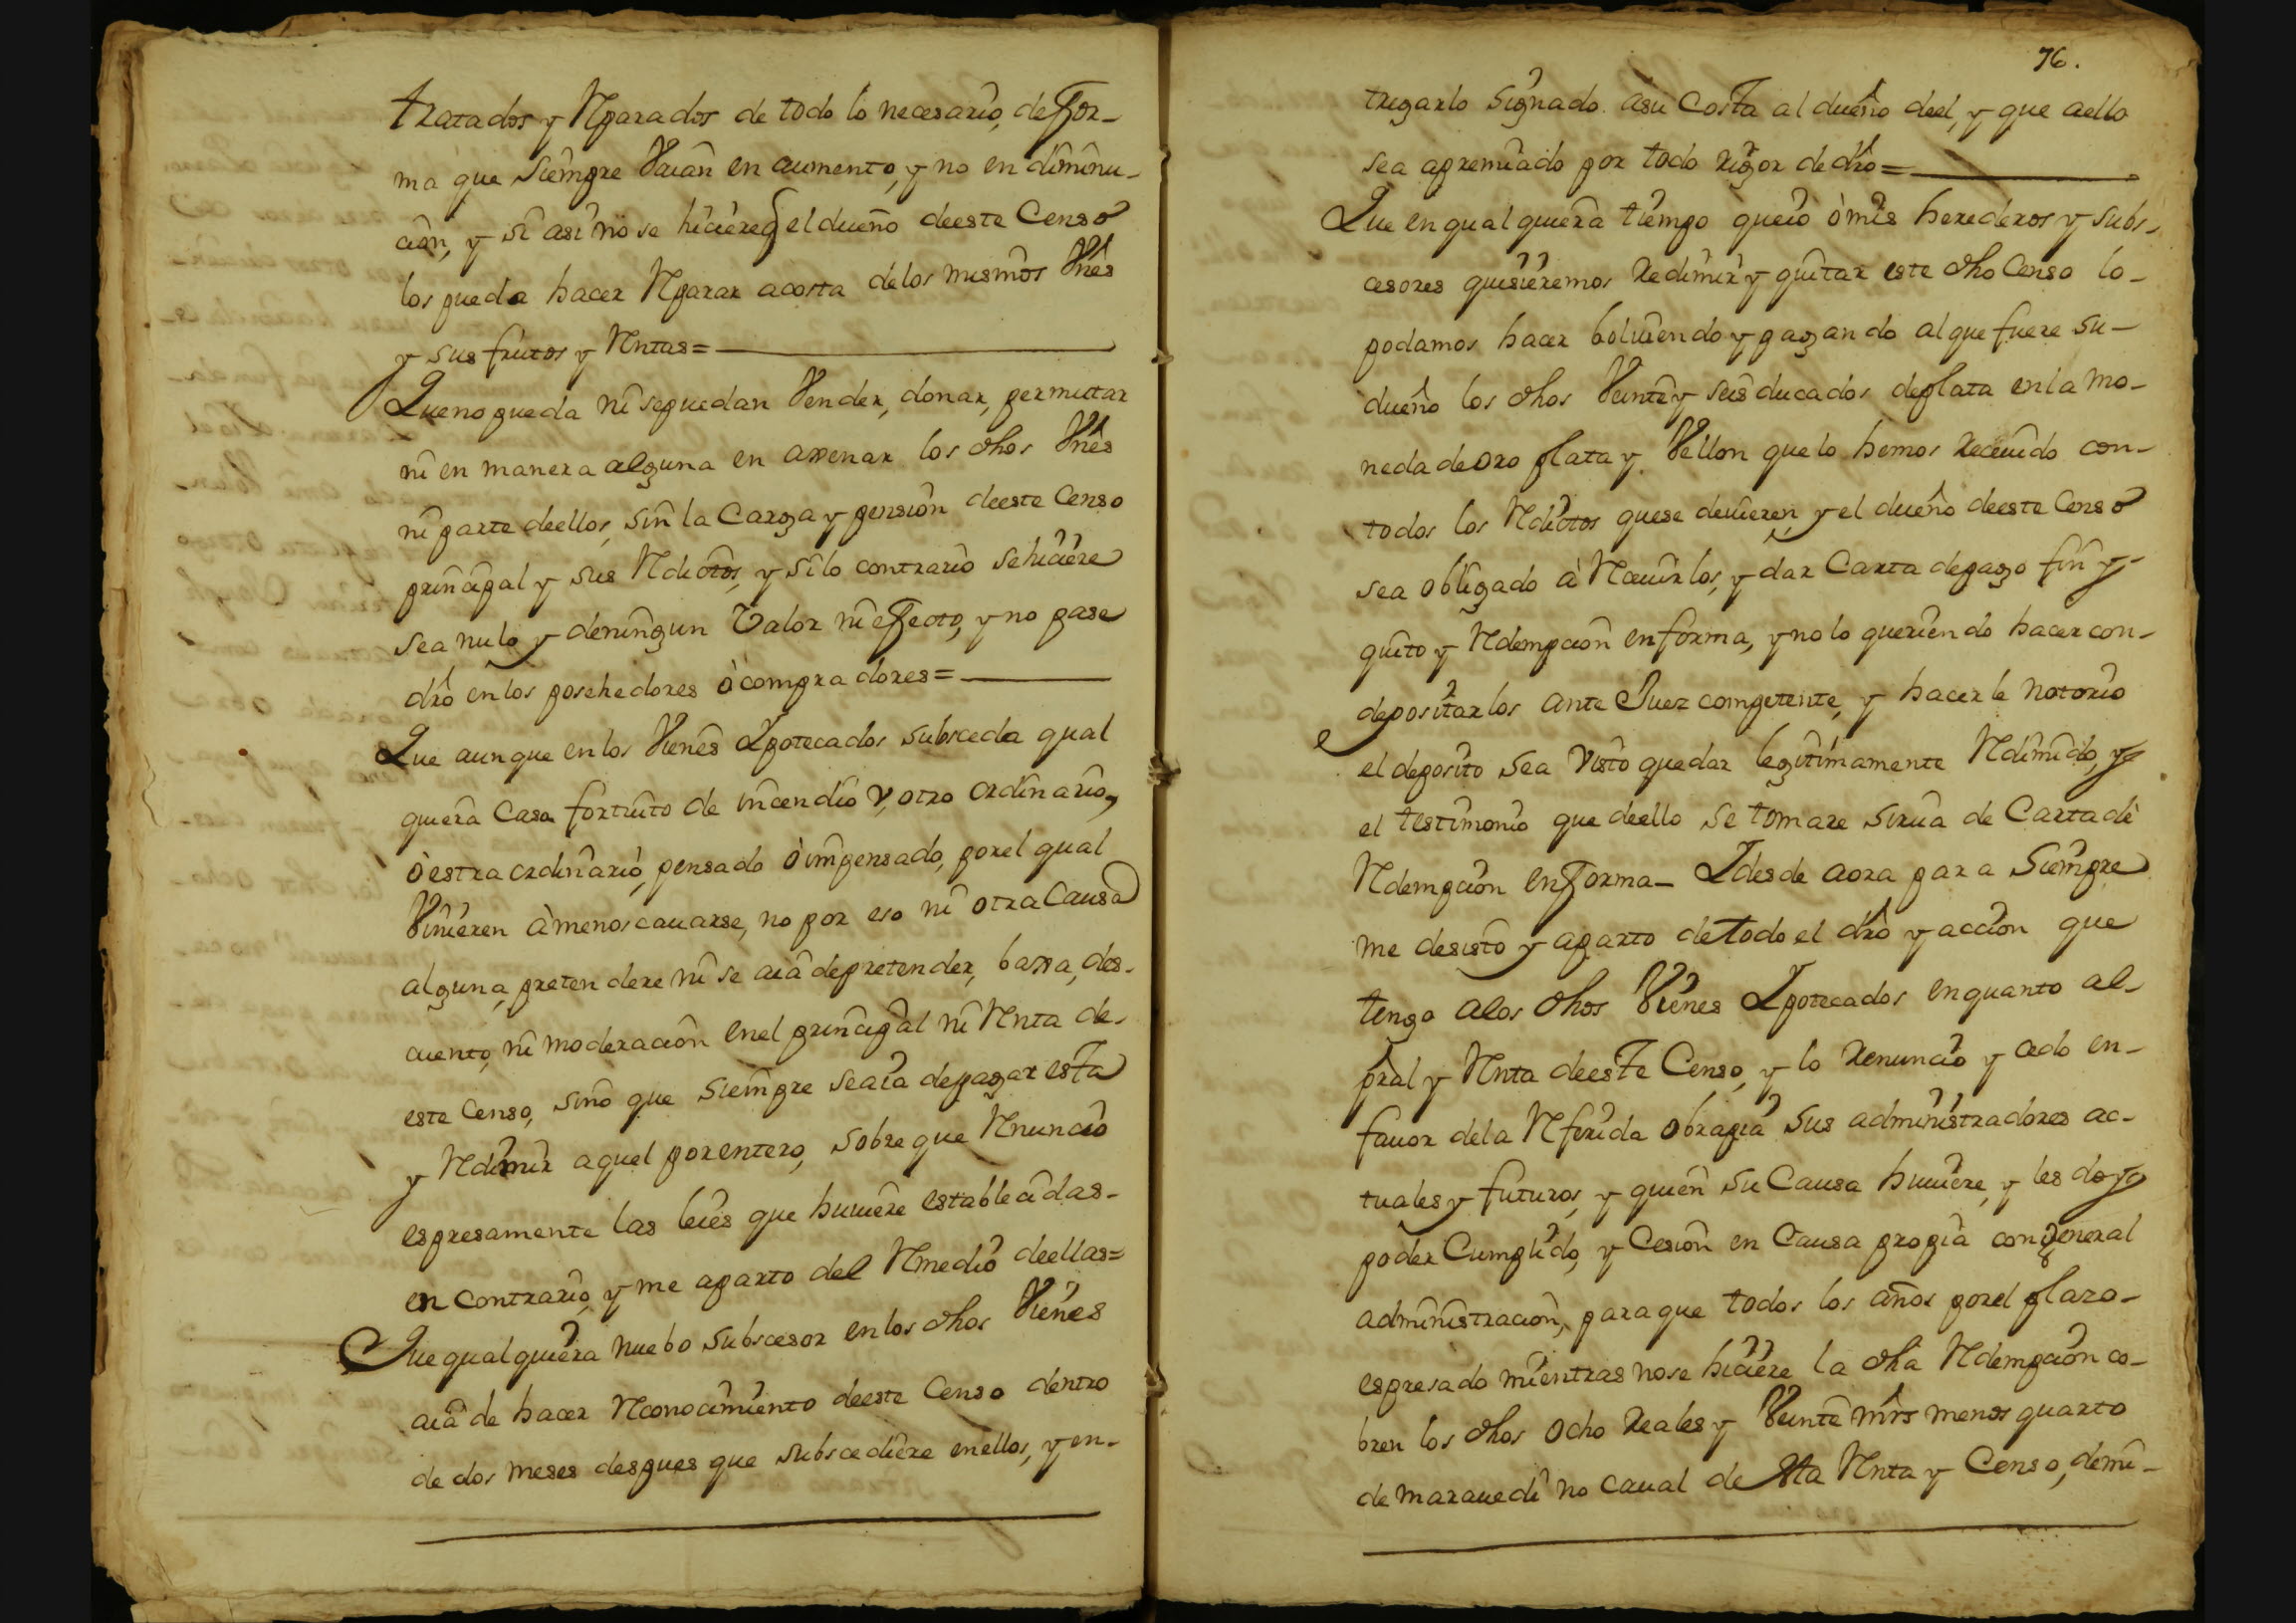 tratados y Rparados de todo lo necesario, de for-
ma que siempre Vaian en aumento, y no en diminu-
cion, y si asi no se hiciere, el dueño deeste Censo
los pueda hacer Rparar acosta delos mismos Vnes
y sus frutos y Rntas =
Que no pueda ni sepuedan Vender, donar, permuttar
ni en manera alguna en axenar los dhos Vnes
ni parte deellos, sin la Carga y pension deeste Censo
principal y sus Rdictos, y si lo contrario se hiciere
sea nulo y deningun Valor ni efecto, y no pase
dro en los posehedores ò compradores =
Que aunque en los Vienes Ypotecados subsceda qual
quiera Caso fortuito de incendio V, otro ordinario,
ò estraordinario, pensado ò impensado, porel qual
Vinieren à menoscauarse, no por eso ni otra Causa
alguna, pretendere ni se aia depretender, baxa, des-
cuento, ni moderacion enel principal ni Rnta de-
este Censo, sino que siempre seaia depagar esta
y Rdimir aquel porentero, sobre que Rnuncio
espresamente las leies que huuiere establecidas-
en contrario, y me aparto del Rmedio deellas=
Que qualquiera nuebo subscesor enlos dhos Vienes
aia de hacer Rconocimiento deeste Censo dentro
de dos meses despues que subscediere enellos, y en-
76.
tregarlo signado. asu Costa al dueño deel, y que aello
sea apremiado por todo rigor de dro=
Que en qualquiera tiempo queio ò mis herederos y subs-
cesores quisieremos redimir y quitar este dho Censo lo-
podamos hacer boluiendo y pagando alque fuere su-
dueño los dhos Veinte y seis ducados deplata en la mo-
neda de oro plata y Vellon que lo hemos receuido con-
todos los Rdictos quese deuieren, y el dueño deeste Censo
sea obligado à Rceuirlos, y dar Carta depago fin y-
quito y Rdempcion enforma, y no lo queriendo hacer con-
depositarlos ante Juez competente, y hacerle notorio
el deposito sea Visto quedar legitimamente Rdimido, y
el testimonio que deello se tomare sirua de Carta de
Rdempcion enforma- Ydesde aora para Siempre
me desisto y aparto detodo el dro y accion que
tengo alos dhos Vienes Ypotecados enquanto al-
pral y Rnta deeste Censo, y lo renuncio y cedo en-
fauor dela Rferida obrapia sus administradores ac-
tuales y futuros, y quien su Causa huuiere, y les doy
poder Cumplido, y Cesion en Causa propia con general
administracion, paraque todos los años porel plazo-
espresado mientras nose hiciere la dha Rdempcion co-
bren los dhos ocho reales y Veinte mrs menos quarto
de marauedi no caual de sta Rnta y Censo, demi-